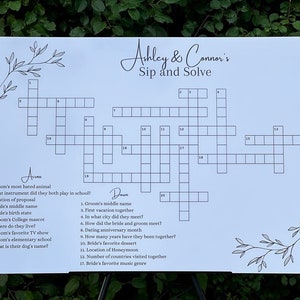 Ashley & Connor's
Sip and Solve
Across
most hated animal
instrument did they both play in school?
of proposal
middle name
birth state
College mascot
do they live?
favorite TV show
elementary school
is their dog's name?
Down
1. Groom's middle name
2. First vacation together
4. In what city did they meet?
6. How did the bride and groom meet?
8. Dating anniversary month
9. How many years have they been together?
10. Bride's favorite dessert
12. Location of Honeymoon
15. Number of countries visited together
17. Bride's favorite music genre